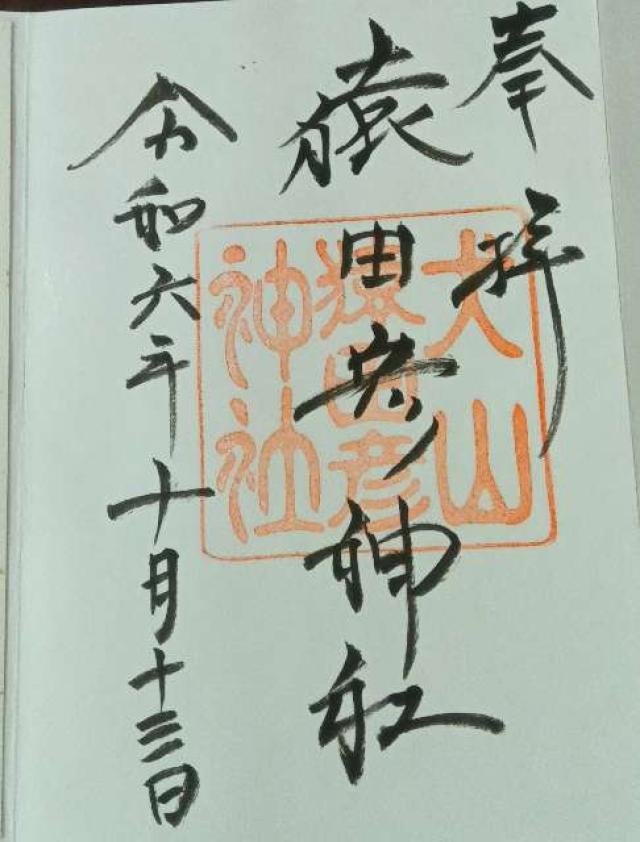 奉拝
猿田彦神社
令和六年十月十三日
犬山
猿田彦
神社